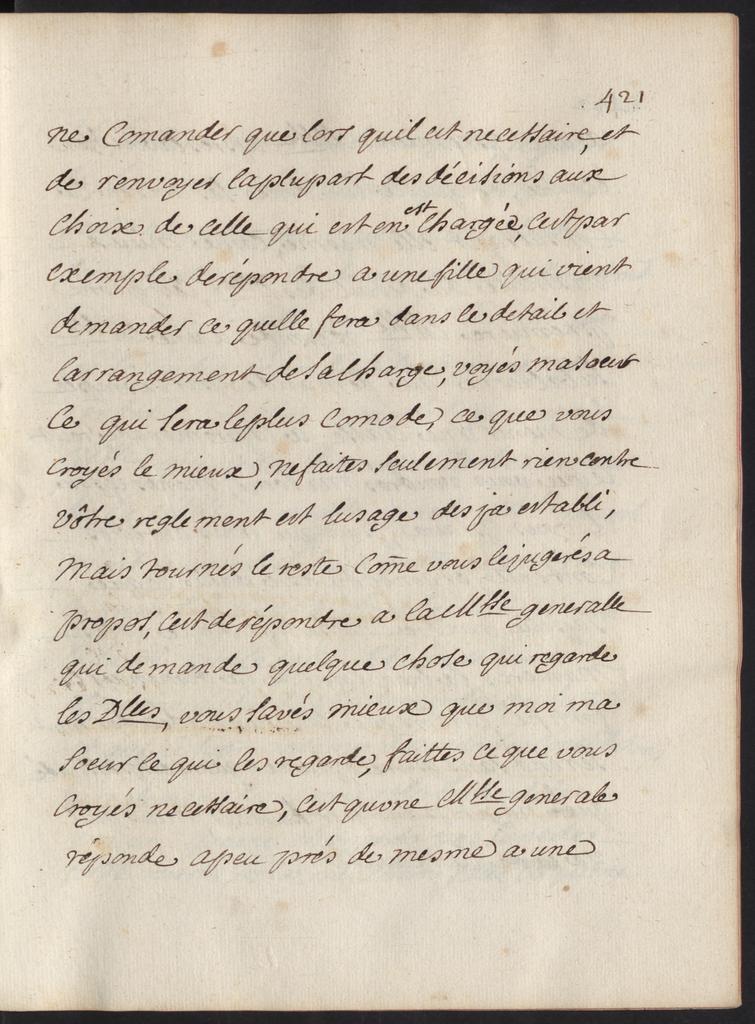 421
ne Comander que lors quil est necessaire, et
de renvoyer laplupart des décisions aux
choix de celle qui est en est Chargée, Cest par
exemple derépondre a une fille qui vient
demander ce quelle fera dans le detail et
larrangement desa Charge, voyés masoeur
Ce qui sera leplus Comode, ce que vous
Croyés le mieux, nefaites seulement rien contre
vôtre reglement est lusage desja establi,
Mais tournés le reste Com̃e vous le jugerés a
propos, Cest derépondre a la Msse generalle
qui demande quelque chose qui regarde
les Dlles, vous savés mieux que moi ma
soeur ce qui les regarde, faittes ce que vous
Croyés necessaire, Cest quune Msse generale
réponde apeu prés de mesme a une